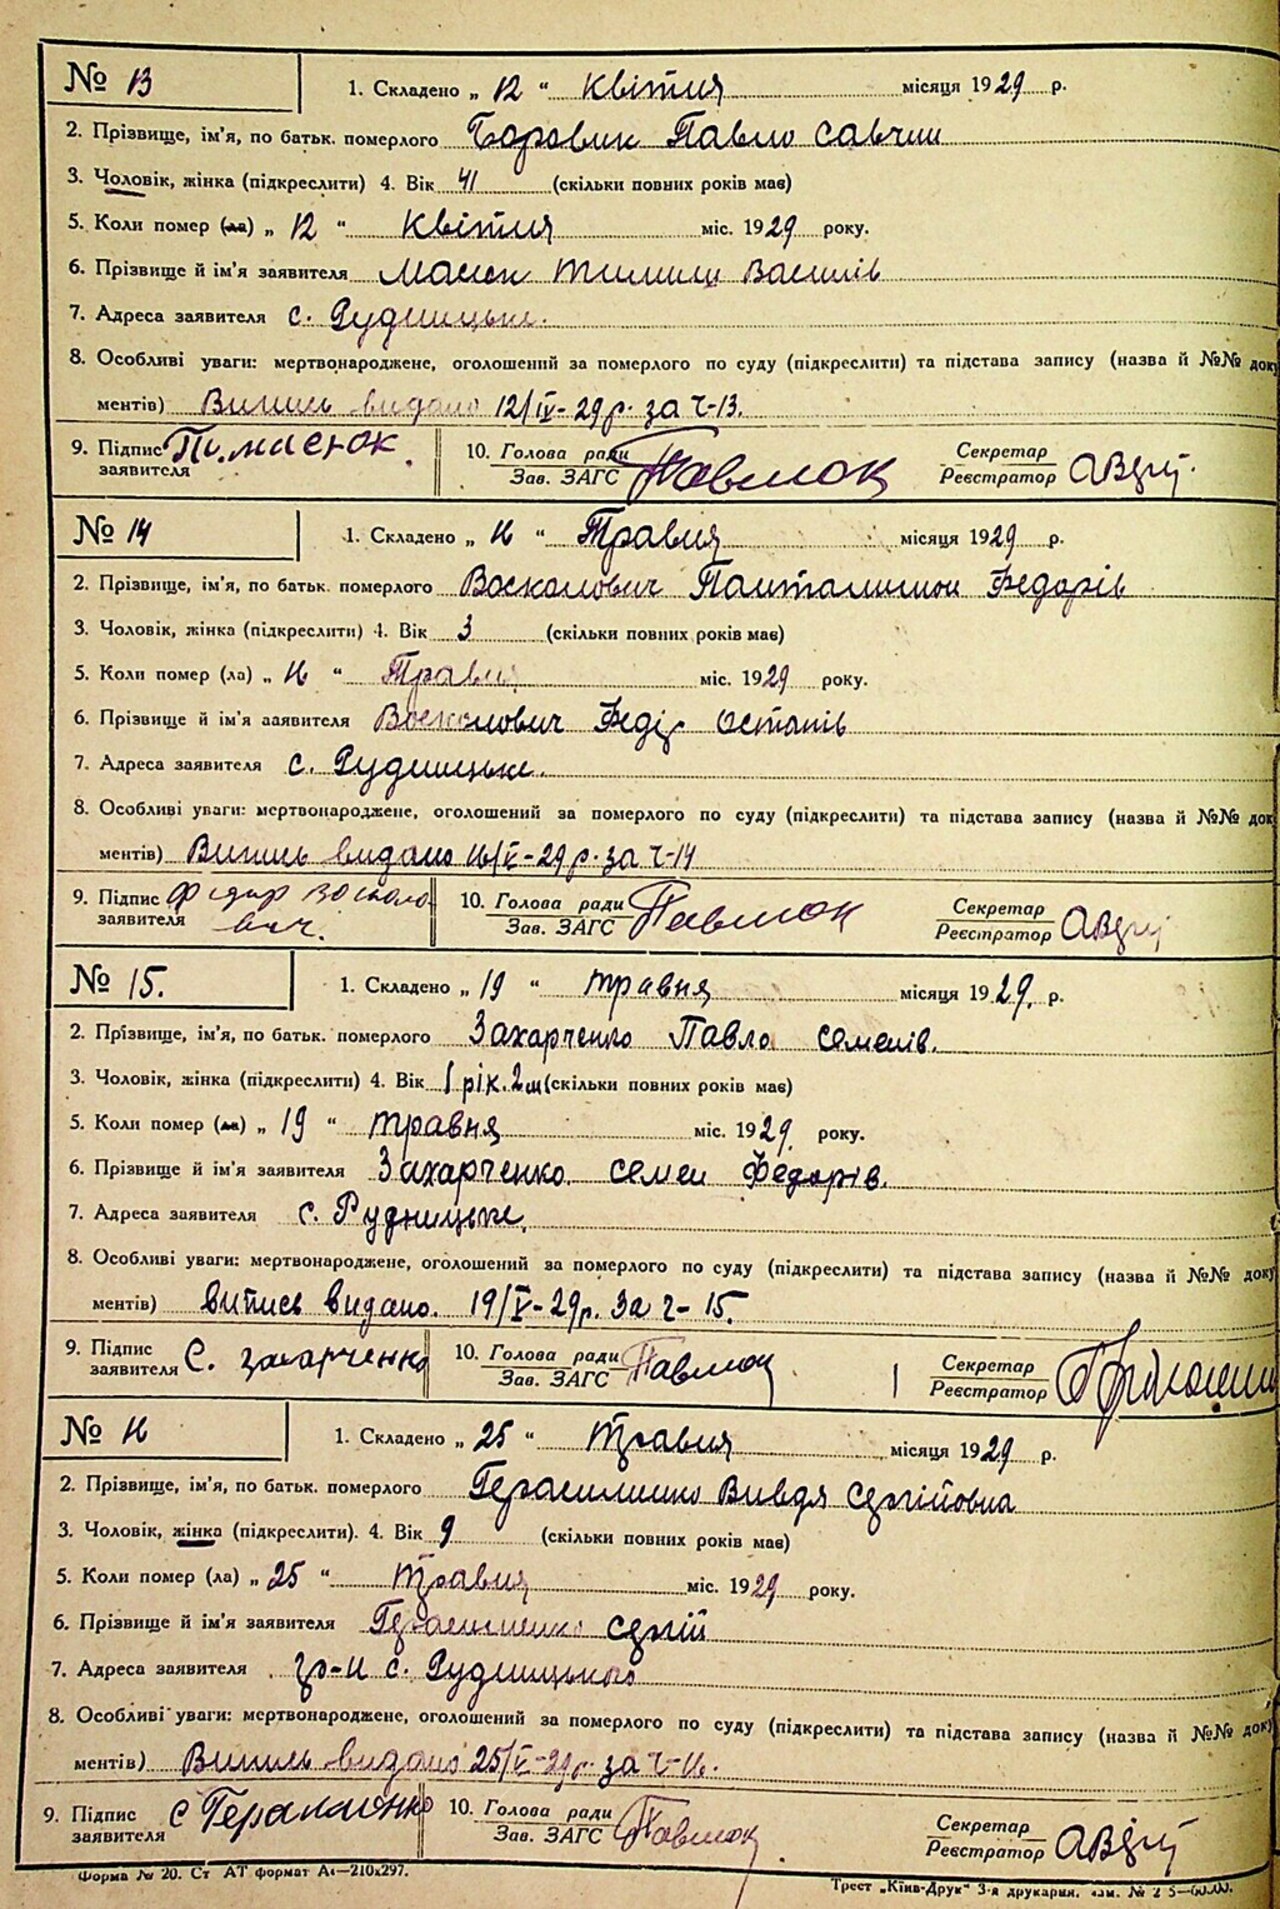 № 13 1. Складено „ 12 “ квітня місяця 1929 р.
2. Прізвище, ім'я, по батьк. померлого Боровик Павло Савчин
3. Чоловік, жінка (підкреслити) 4. Вік 41 (скільки повних років має)
5. Коли помер (ла) „ 12 “ квітня міс. 1929 року.
6. Прізвище й ім'я заявителя Василів
7. Адреса заявителя с. Рудницьке.
8. Особливі уваги: мертвонароджене, оголошений за померлого по суду (підкреслити) та підстава запису (назва й №№ доку
ментів) Випись видано 12/IV-29р. за ч-13.
9. Підпис 10. Голова ради Павлюк Секретар
заявителя Зав. ЗАГС Реєстратор
№ 14 1. Складено „ 16 “ Травня місяця 1929 р.
2. Прізвище, ім'я, по батьк. померлого Восколович Панталимон Федорів
3. Чоловік, жінка (підкреслити) 4. Вік 3 (скільки повних років має)
5. Коли помер (ла) „ 16 “ Травня міс. 1929 року.
6. Прізвище й ім'я заявителя Восколович Федір Остапів
7. Адреса заявителя с. Рудницьке.
8. Особливі уваги: мертвонароджене, оголошений за померлого по суду (підкреслити) та підстава запису (назва й №№ доку
ментів) Випись видано 16/V-29р. за ч-14
9. Підпис Федир Восколо 10. Голова ради Павлюк Секретар
заявителя вич. Зав. ЗАГС Реєстратор
№ 15. 1. Складено „ 19 “ травня місяця 1929. р.
2. Прізвище, ім'я, по батьк. померлого Захарченко Павло Семенів.
3. Чоловік, жінка (підкреслити) 4. Вік 1 рік. 2 м (скільки повних років має)
5. Коли помер (ла) „ 19 “ травня міс. 1929. року.
6. Прізвище й ім'я заявителя Захарченко Семен Федорів.
7. Адреса заявителя с. Рудницьке.
8. Особливі уваги: мертвонароджене, оголошений за померлого по суду (підкреслити) та підстава запису (назва й №№ доку
ментів) випись видано. 19/V-29р. за ч-15.
9. Підпис С. Захарченко 10. Голова ради Павлюк Секретар
заявителя Зав. ЗАГС Реєстратор
№ 16 1. Складено „ 25 “ Травня місяця 1929 р.
2. Прізвище, ім'я, по батьк. померлого Герасименко Вивдя Сергійовна
3. Чоловік, жінка (підкреслити). 4. Вік 9 (скільки повних років має)
5. Коли помер (ла) „ 25 “ Травня міс. 1929 року.
6. Прізвище й ім'я заявителя Герасименко Сергій
7. Адреса заявителя гр-н с. Рудницького
8. Особливі уваги: мертвонароджене, оголошений за померлого по суду (підкреслити) та підстава запису (назва й №№ доку
ментів) Випись видано 25/V-29р. за ч-16.
9. Підпис С Герасименко 10. Голова ради Павлюк Секретар
заявителя Зав. ЗАГС Реєстратор
Форма № 20. Ст АТ формат А4—210х297.
Трест „Київ-Друк“ 3-я друкарня.